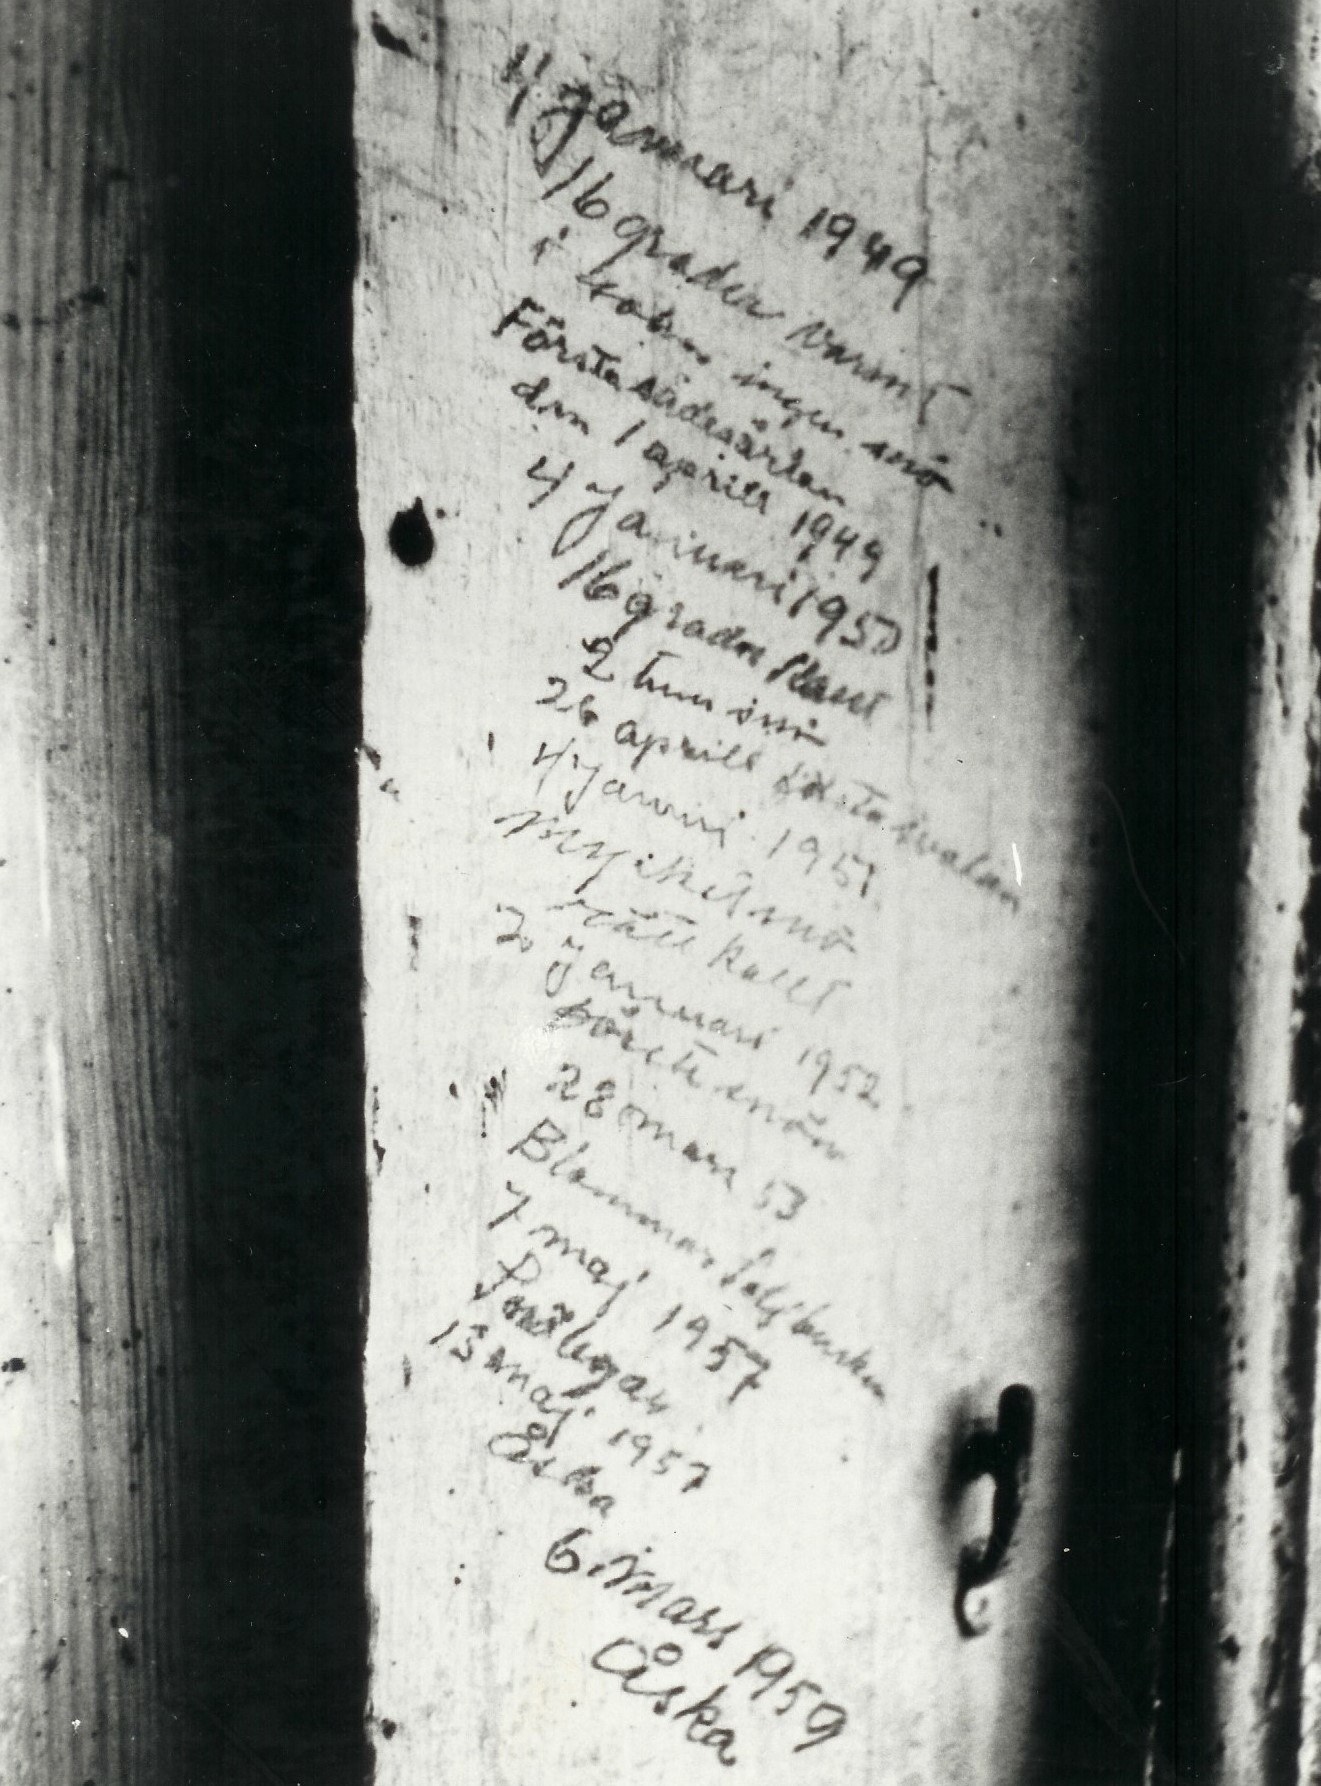 4 Januari 1949
16 grader varmt
i solen ingen snö
Första sädesärlan
den 1 aprill 1949
4 Januari 1950
16 grader kallt
2 tum snö
26 aprill första svalan
4 Januari 1951
myiket snö
rätt kallt
2 Januari 1952
snön
28 mars 53
Blommar buskar
7 maj 1957
Snö
15 maj 1957
Åska
6 Mars 1959
Åska